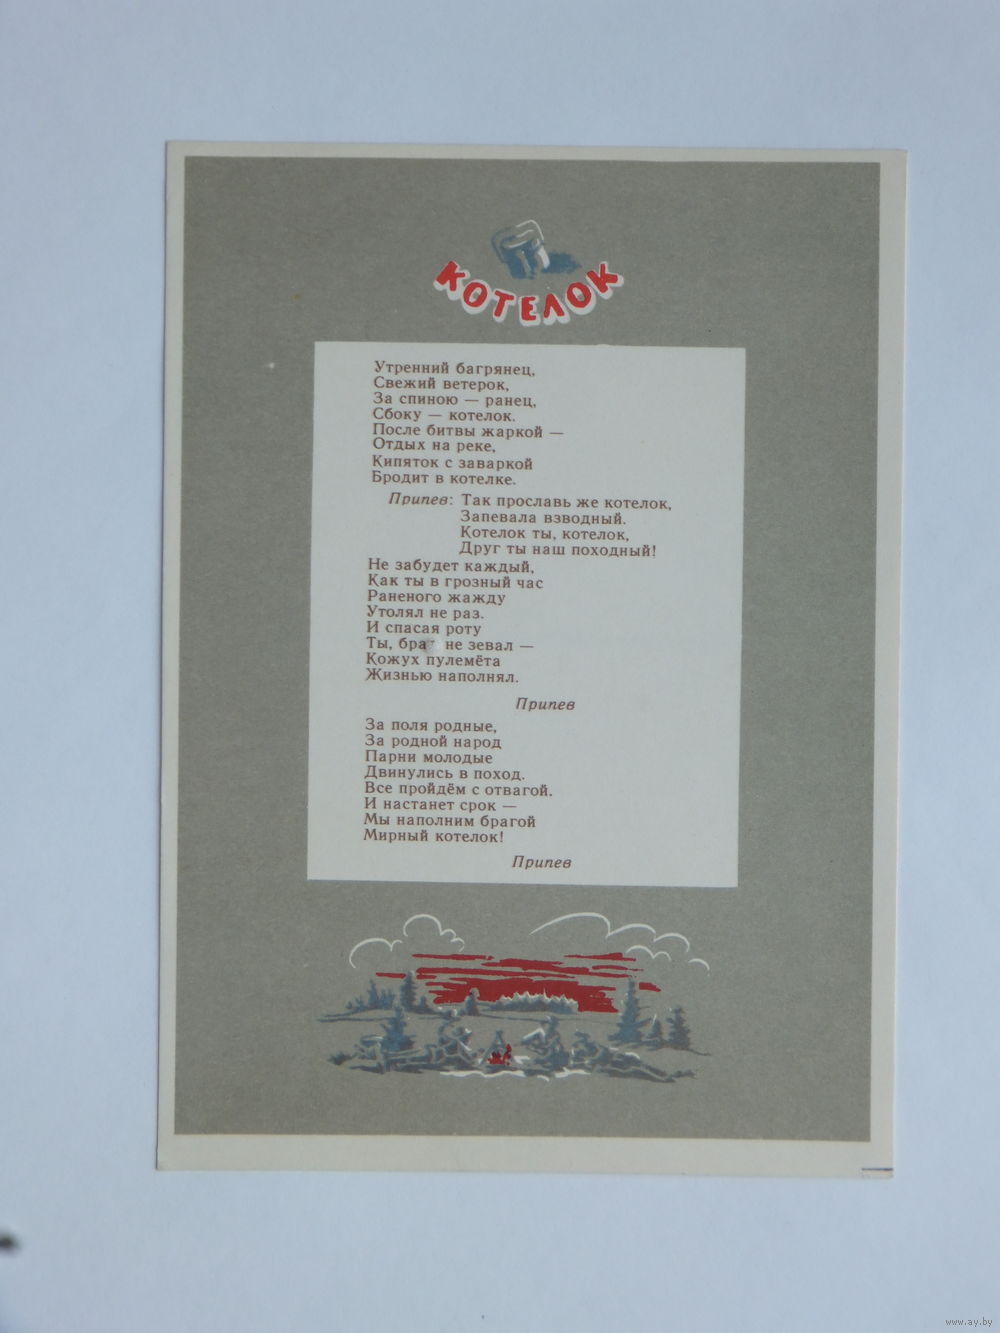 КОТЕЛОК
Утренний багрянец,
Свежий ветерок,
За спиною — ранец,
Сбоку — котелок.
После битвы жаркой —
Отдых на реке,
Кипяток с заваркой
Бродит в котелке.
Припев: Так прославь же котелок,
Запевала взводный.
Котелок ты, котелок,
Друг ты наш походный!
Не забудет каждый,
Как ты в грозный час
Раненого жажду
Утолял не раз.
И спасая роту
Ты, бра не зевал —
Кожух пулемёта
Жизнью наполнял.
Припев
За поля родные,
За родной народ
Парни молодые
Двинулись в поход.
Все пройдём с отвагой.
И настанет срок —
Мы наполним брагой
Мирный котелок!
Припев
www.ay.by